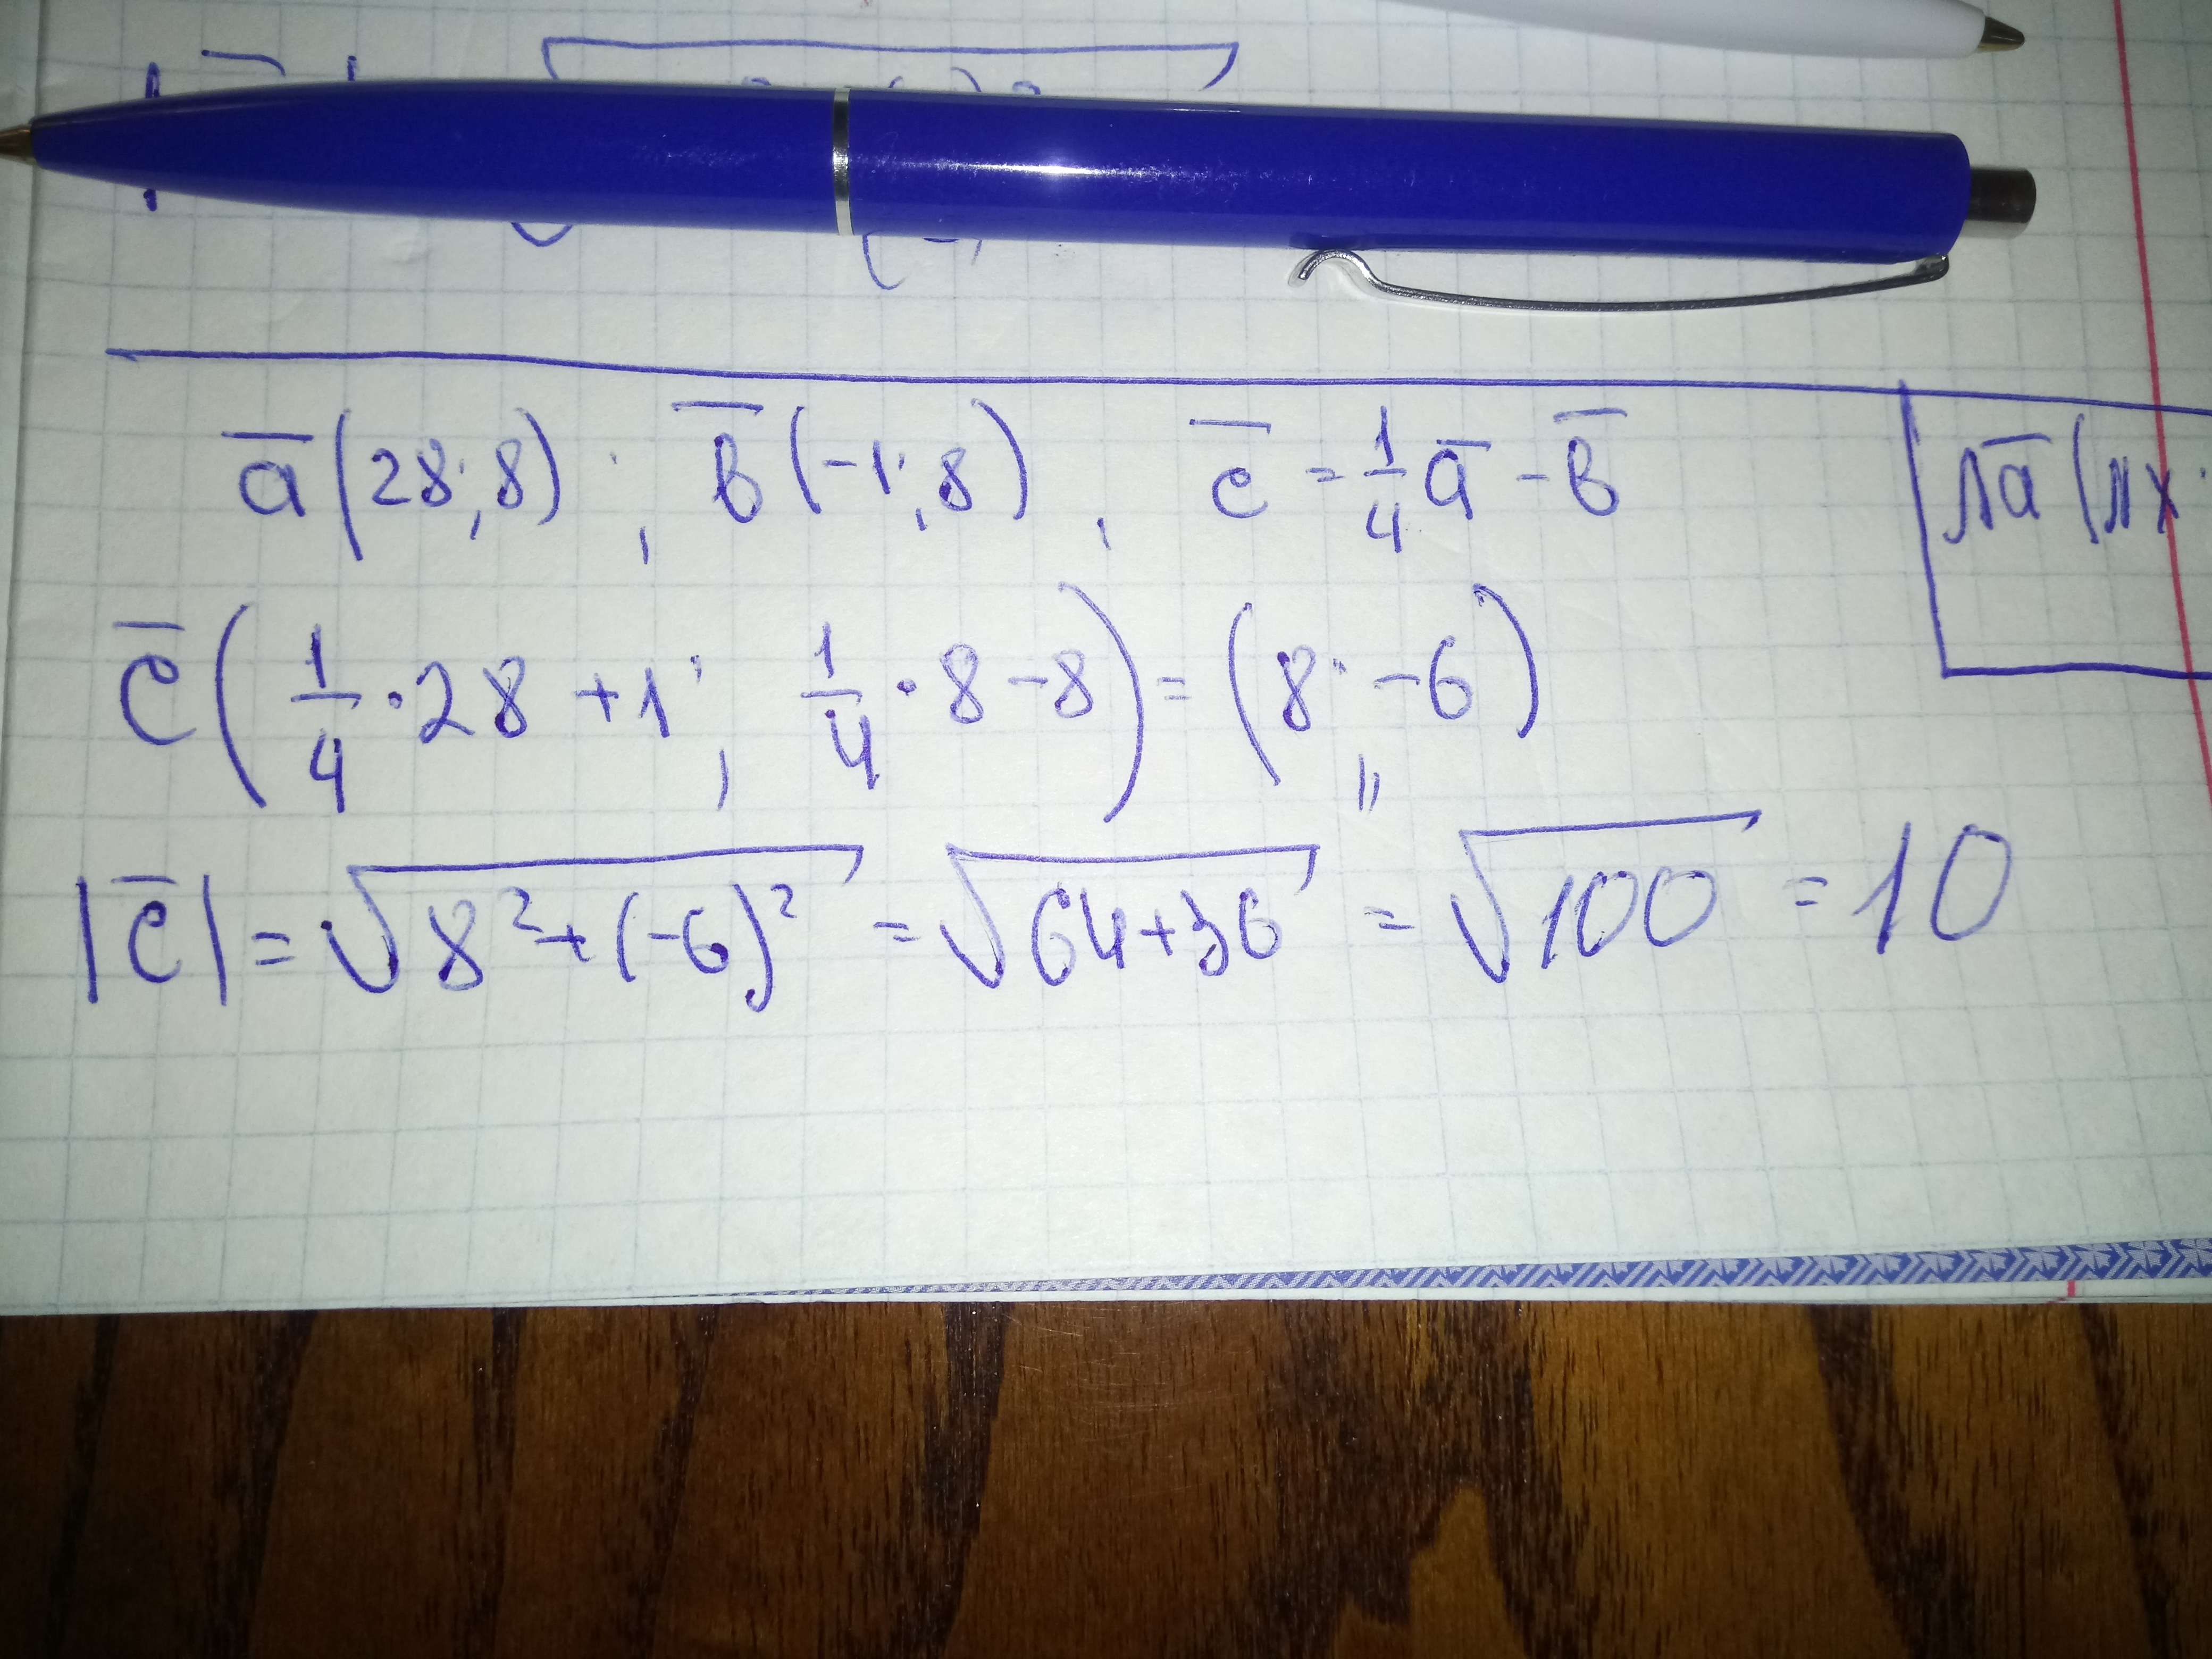 a̅ (28; 8) ; b̅ (-1; 8) , c̅ = 1/4 a̅ - b̅
c̅ ( 1/4 · 28 + 1 ; 1/4 · 8 - 8 ) = (8; -6)
|c̅| = √(8² + (-6)²) = √(64+36) = √100 = 10
λa̅ (λx